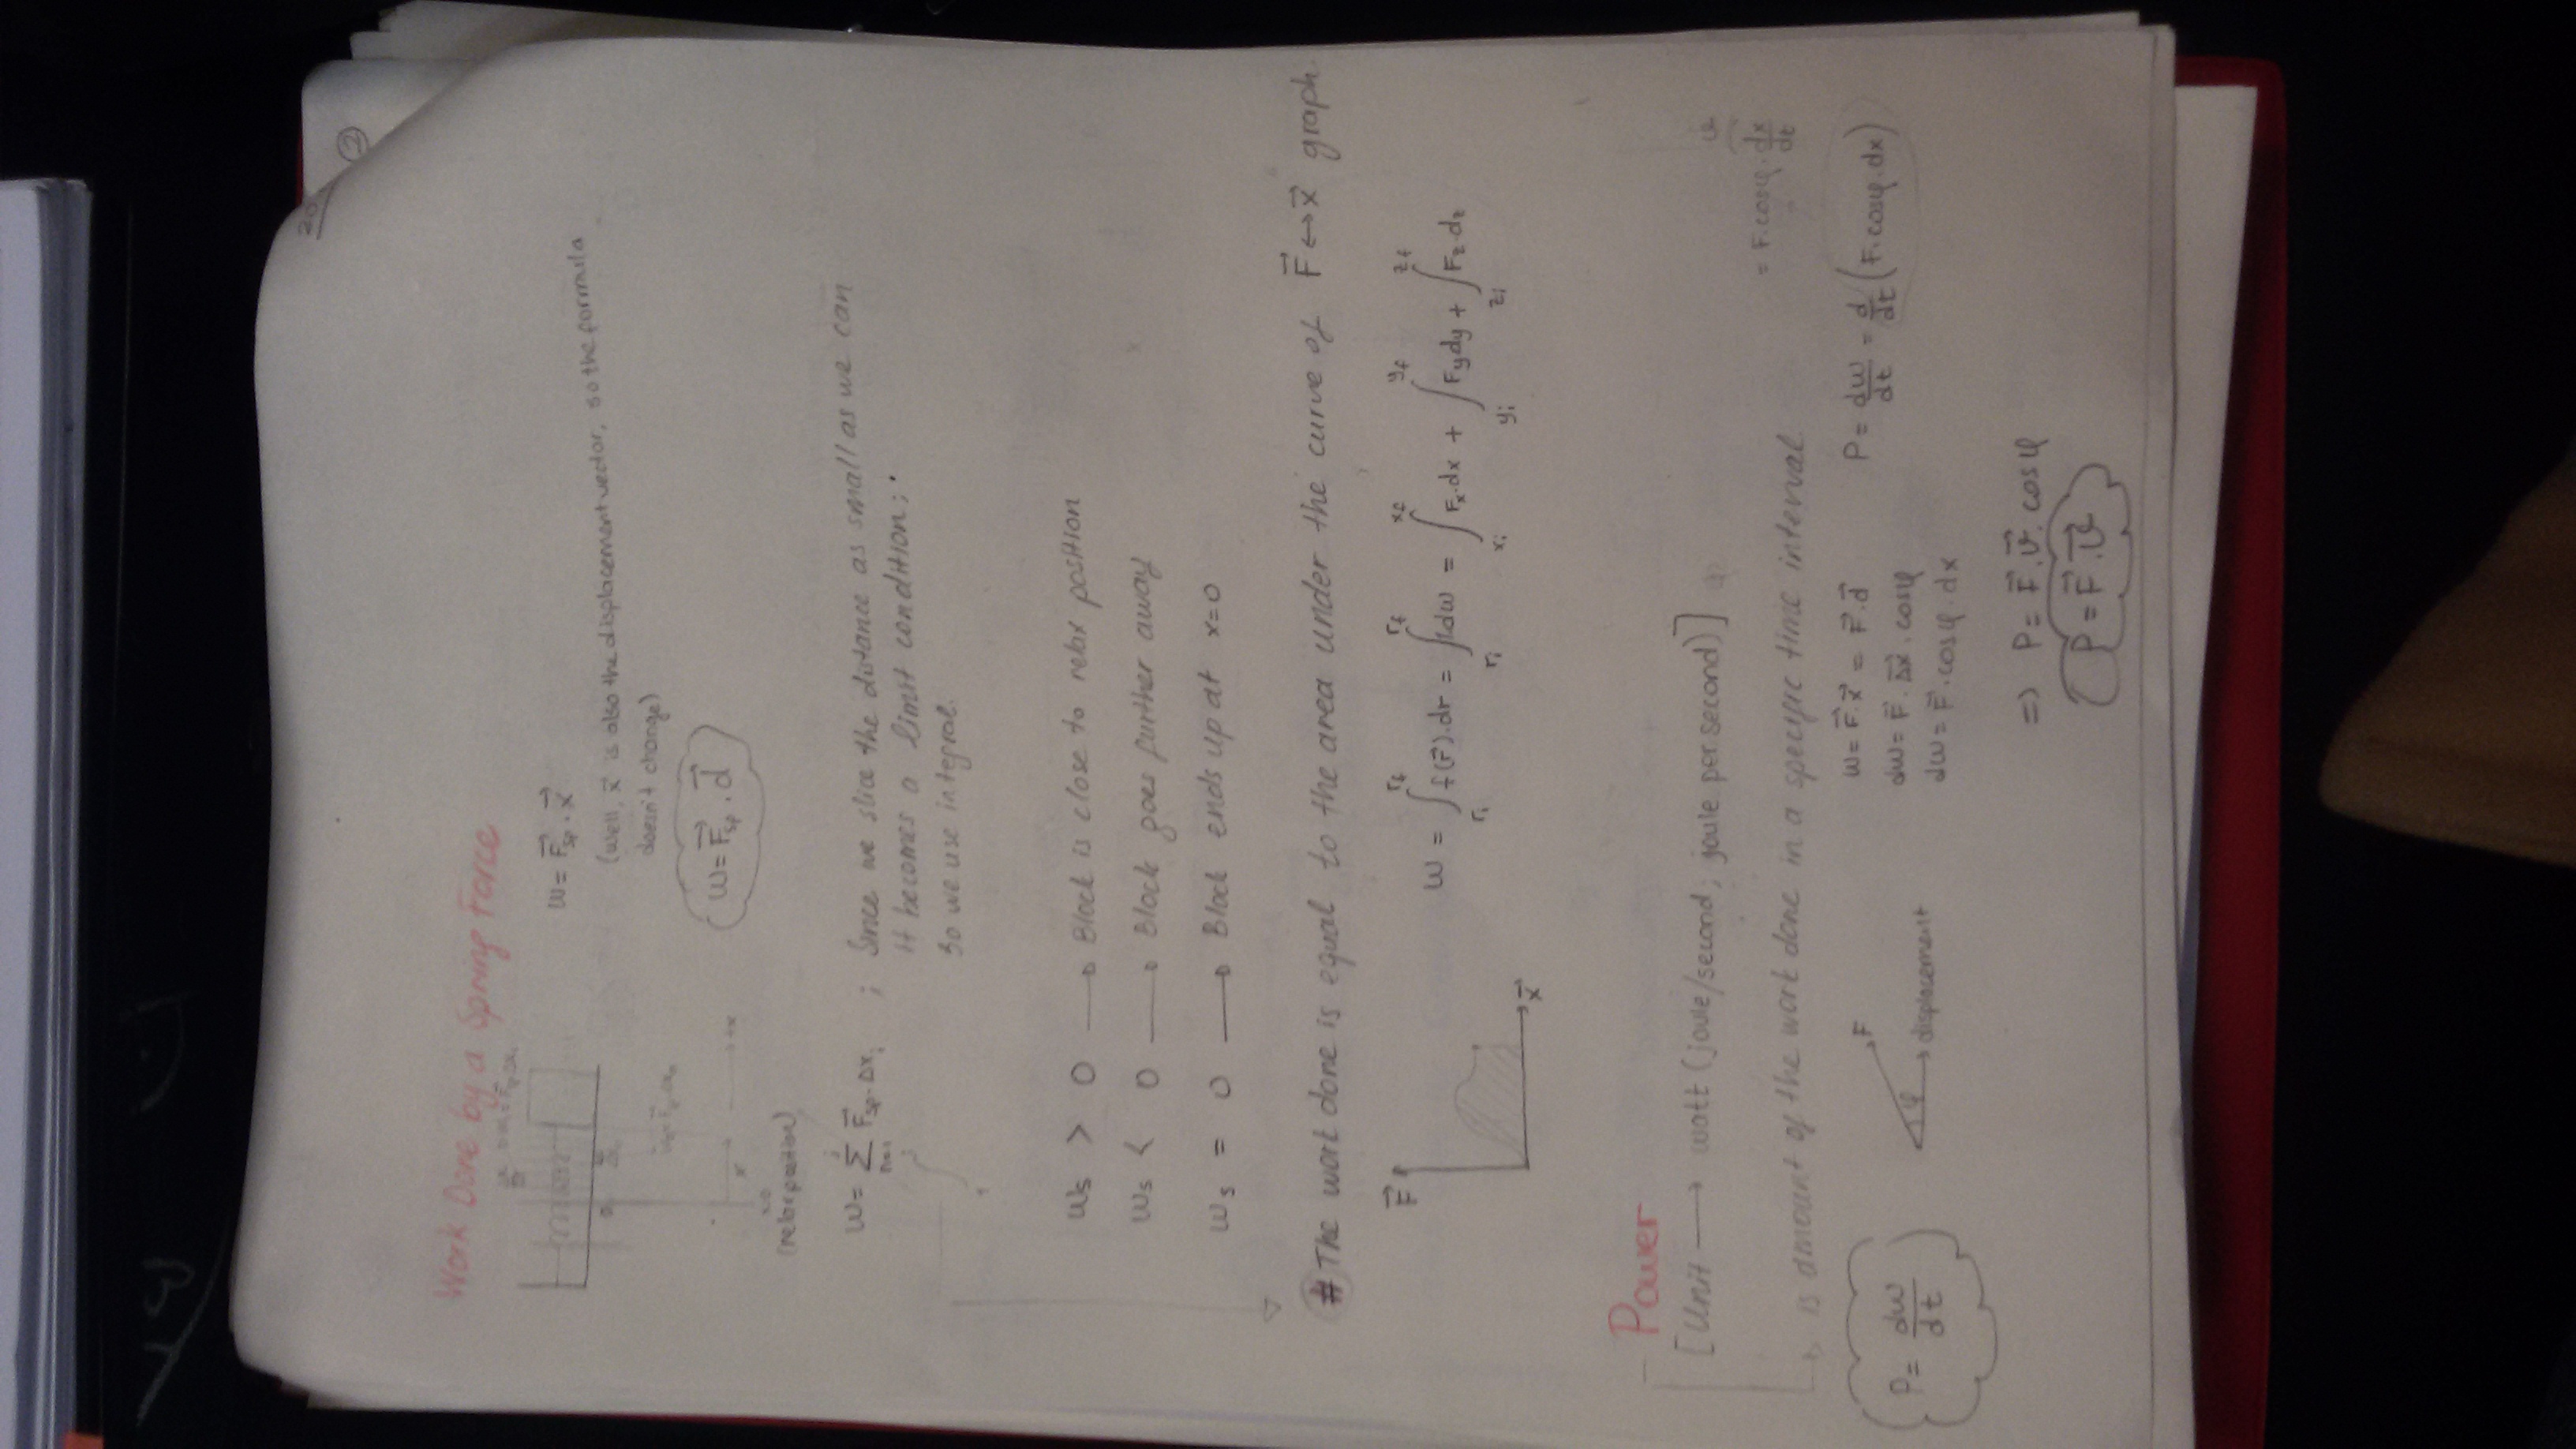 2
Work Done by a Spring Force
W = F⃗sp . x⃗
(well, x⃗ is also the displacement vector, so the formula
doesn't change)
W = F⃗sp . d⃗
x
+x
x=0
(relax position)
W = Σ F⃗sp . Δxi ; Since we slice the distance as small as we can
it becomes a limit condition;
So we use integral.
Ws > 0 → Block is close to relax position
Ws < 0 → Block goes further away
Ws = 0 → Block ends up at x=0
# The work done is equal to the area under the curve of F⃗ ↔ x⃗ graph
F⃗
x⃗
W = ∫ri^rf f(r⃗).dr = ∫ri^rf dw = ∫xi^xf Fx.dx + ∫yi^yf Fy dy + ∫zi^zf Fz.dz
Power
[Unit → watt (joule/second; joule per second)]
is amount of the work done in a specific time interval
= F.cosφ.dx/dt
P = dw/dt
F
φ
displacement
W = F⃗.x⃗ = F⃗.d⃗
dw = F⃗.Δx⃗.cosφ
dw = F⃗.cosφ.dx
P = dw/dt = d/dt (F.cosφ.dx)
=> P = F⃗.v⃗.cosφ
P = F⃗.v⃗